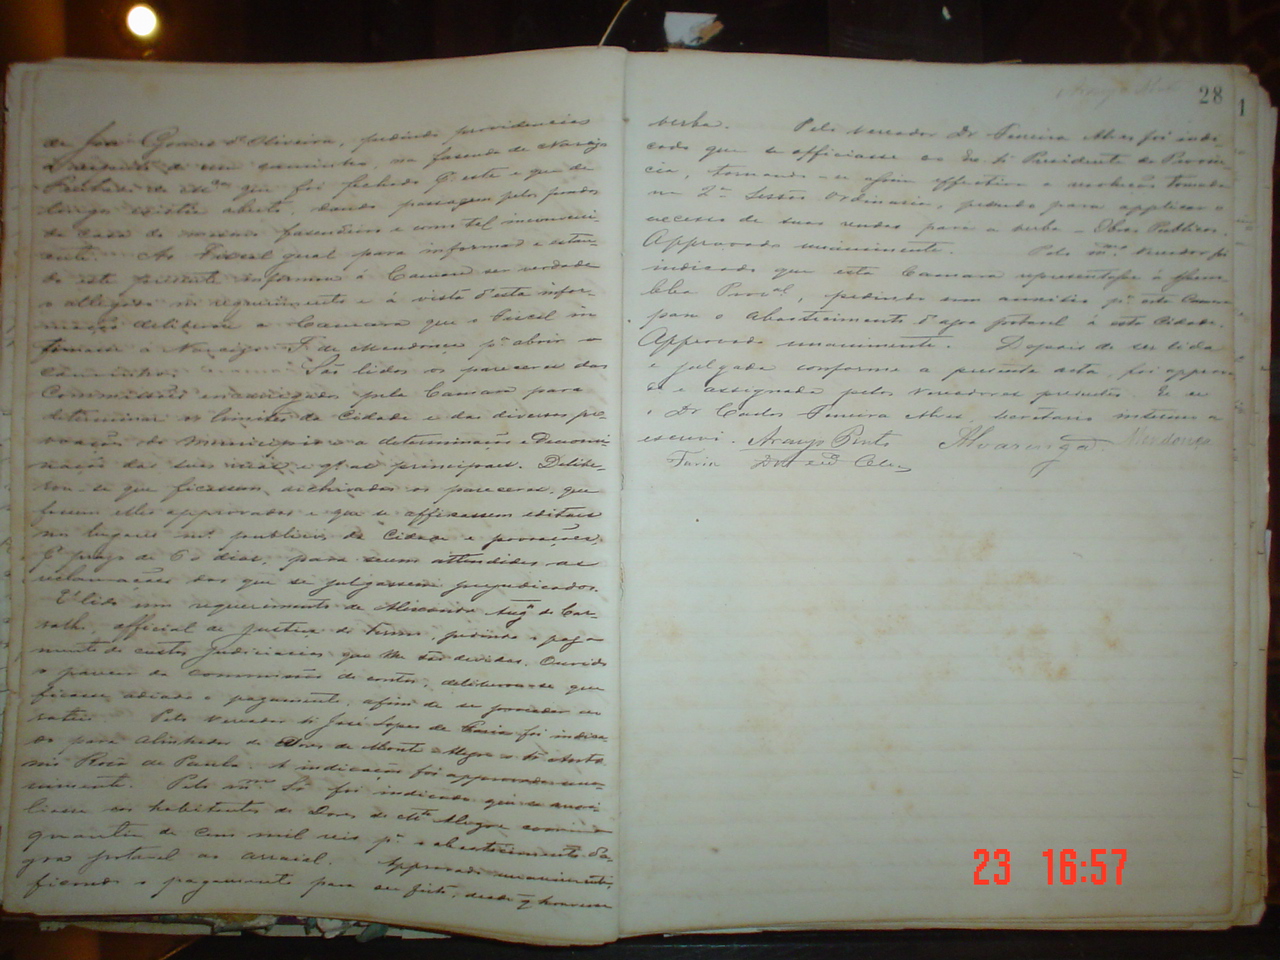 de José Gomes d'Oliveira, pedindo providencias
a respeito de um caminho, na fazenda de Narcizo
que foi fechado q este e que de
longo existia aberto, dando passagem pelos fundos
da casa do mesmo fazendeiro e com tal inconveni-
ente. Ao Fiscal geral para informar e estan-
do este presente informou á Camara ser verdade
o allegado no requerimento e á vista d'esta infor-
mação deliberou a Camara que o Fiscal in
timasse a Narcizo F. de Mendonça pª abrir o
caminho. São lidos os pareceres das
Commissões encarregadas pela Camara para
determinar os limites da Cidade e das diversas po
voações do Municipio e a determinação e Denomi
nação das suas ruas e praças principaes. Delibe-
rou-se que ficassem archivados os pareceres, que
fossem elles approvados e que se affixassem editaes
nos lugares mº publicos da Cidade e povoações,
prazo de 60 dias, para serem attendidas as
reclamações dos que se julgassem prejudicados.
E' lido um requerimento de Augº de Car-
valho, official de justiça do Termo, pedindo o paga
mento de custas judiciarias que lhe são devidas. Ouvido
o parecer da commissão de contas, deliberou-se que
ficasse adiado o pagamento, afim de se proceder ao
rateio. Pelo Vereador Sr José Lopes de Faria foi indica
do para alinhador de Dores de Monte Alegre o Sr Anto
nio de Paula. A indicação foi approvada una-
nimemente. Pelo mmo Sr foi indicado que se auxi
liasse aos habitantes de Dores de Mte Alegre com a
quantia de cem mil reis pª o abastecimento d'a
goa potavel ao arraial. Approvado unanimemente,
ficando o pagamento para ser feito, desde q houvesse
28
1
verba. Pelo Vereador Dr Ferreira Alves foi indi-
cado que se officiasse ao Sr Presidente da Provin
cia, tornando-se assim effectiva a resolução tomada
na 2ª Sessão Ordinaria, pedindo para applicar o
excesso de suas rendas para a verba - Obras Publicas.
Approvado unanimemente. Pelo mmo Vereador foi
indicado que esta Camara representasse á Assem-
bléa Proval, pedindo um auxilio pª esta Camara
para o abastecimento d'agoa potavel á esta Cidade.
Approvado unanimemente. Depois de ser lida
e julgada conforme a presente acta, foi approva
da e assignada pelos Vereadores presentes. Eu
Dr Carlos Ferreira Alves secretario interino a
escrevi. Araujo Pinto Alvarenga Mendonça
Faria
23 16:57